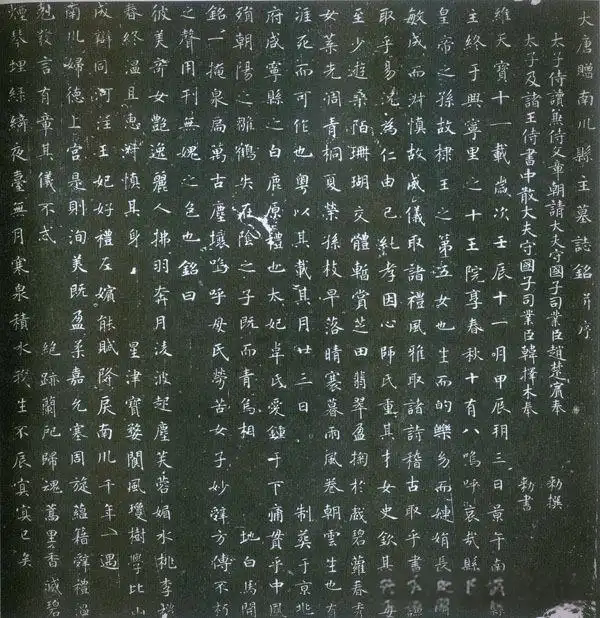 大唐贈南川縣主墓誌銘并序
太子侍讀兼侍文章朝請大夫守國子司業臣趙楚賓奉 勅撰
太子及諸王侍書中散大夫守國子司業臣韓擇木奉 勅書
維天寶十一載歲次壬辰十一月甲辰朔三日景午南川縣
主終于興寧里之十王院享春秋十有八嗚呼哀哉縣
皇帝之孫故棣王之第五女也生而的皪幼而婕娟長
敏成而淑慎故威儀取諸禮風雅取諸詩稽古取乎書謙
取乎易況為仁由己純孝因心師氏重其才女史欽其 每
至少遊桑陌珊瑚交體暫賞芝田翡翠盈掬於戲碧蘿春秀
女蕚先凋青桐夏榮孫枝早落晴褰暮雨風卷朝雲生也有
涯死而可作也粵以其載其月廿三日 制葬于京兆
府咸寧縣之白鹿原禮也太妃卓氏愛鍾于下痛貫乎中鳳
殞朝陽之雛鶴失在陰之子既而青烏相 地白馬開
銘一掩泉扃萬古塵壤嗚呼母氏勞苦女子妙辭方傳不朽
之聲用刊無媿之色也銘曰
彼美齊女艷逸麗人拂羽奔月淩波起塵芙蓉媚水桃李
春終溫且惠淑慎其身 星津寶婺閬風瓊樹學比山
成辯同河注王妃好禮左嬪能賦降戾南川千年一遇
南川婦德上宮是則洵美既盈柔嘉允塞周旋蘊籍辭禮溫
剋發言有章其儀不忒 絕跡蘭卮歸魂蒿里香滅碧
煙琴埋綠綺夜臺無月寒泉積水我生不辰寘寘已矣